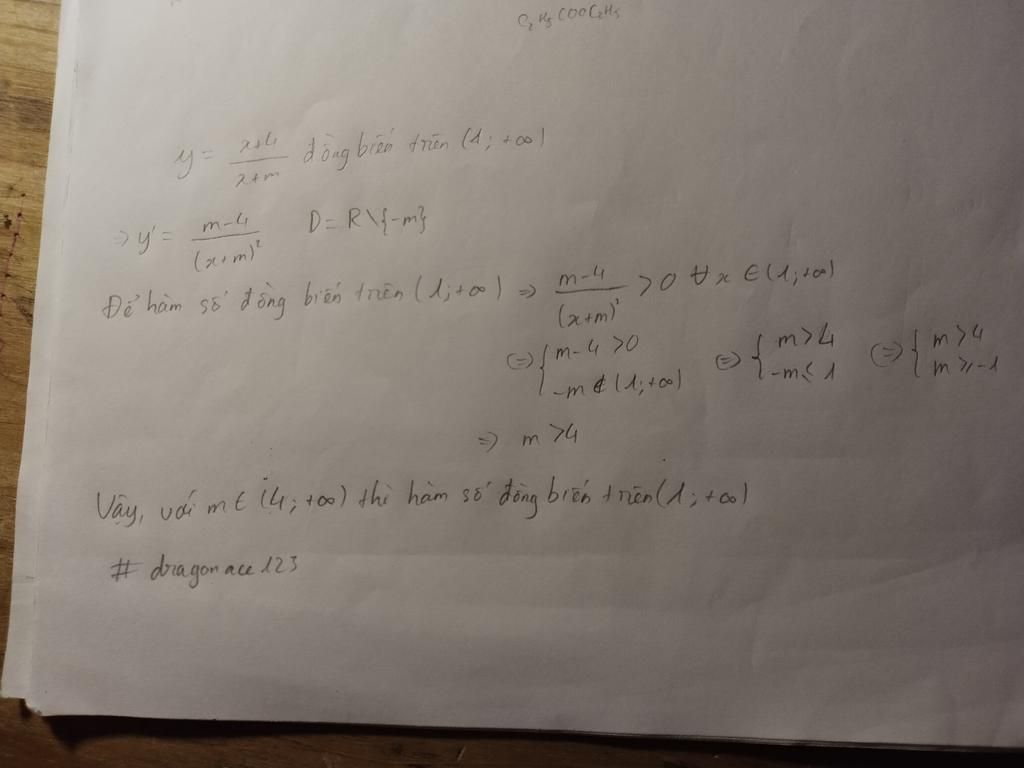 C₂H₅COOC₂H₅
y = \frac{x+4}{x+m} đồng biến trên (1; +∞)
⇒ y' = \frac{m-4}{(x+m)²} D = R\{-m}
Để hàm số đồng biến trên (1; +∞) ⇒ \frac{m-4}{(x+m)²} > 0 ∀x ∈ (1; +∞)
⇔ { m-4 > 0 ; -m ∉ (1; +∞) ⇔ { m > 4 ; -m ≤ 1 ⇔ { m > 4 ; m ≥ -1
⇒ m > 4
Vậy, với m ∈ (4; +∞) thì hàm số đồng biến trên (1; +∞)
# dragonace123